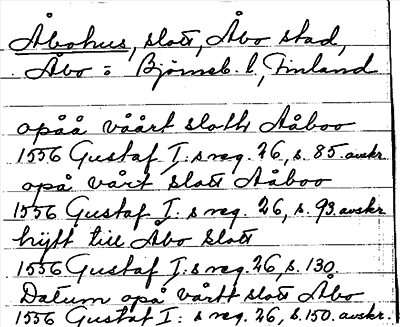 Åbohus, slott, Åbo stad,
Åbo = Björneb. l., Finland
opåå våårt slott Aåboo
1556 Gustaf I:s reg. 26, s. 85. avskr.
opå vårt slott Aåboo
1556 Gustaf I:s reg. 26, s. 93. avskr.
hijtt till Åbo Slott
1556 Gustaf I:s reg. 26, s. 130.
Datum opå vårtt slott Åbo
1556 Gustaf I:s reg. 26, s. 150. avskr.